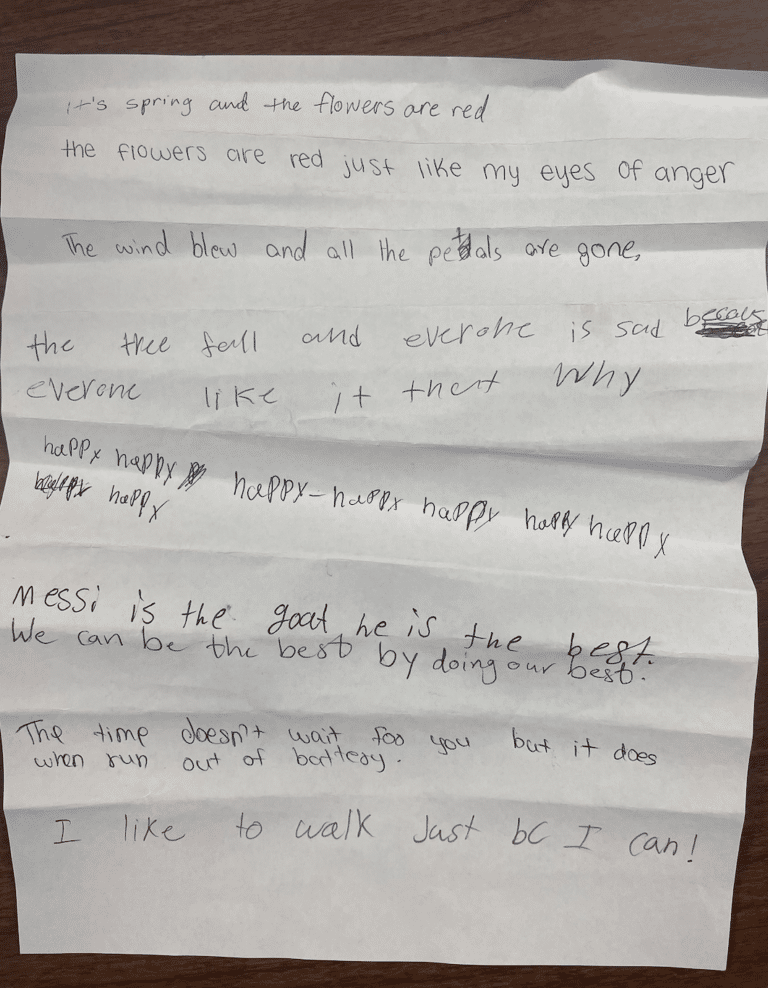 it's spring and the flowers are red
the flowers are red just like my eyes of anger
The wind blew and all the petals are gone,
the tree fall and everone is sad becaus
everone like it that Why
happy happy
happy happy-happy happy happy happy
Messi is the goat he is the best.
We can be the best by doing our best.
The time doesn't wait foo you but it does
when run out of battery.
I like to walk Just bc I can!